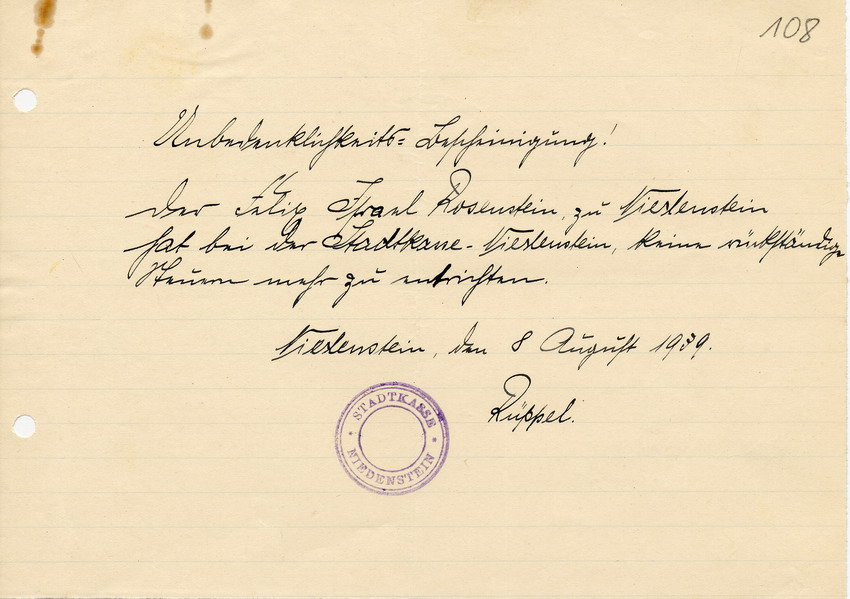 108
Unbedenklichkeits= Bescheinigung!
Der Felix Israel Rosenstein, zu Niedenstein
hat bei der Stadtkasse - Niedenstein, keine rückständige
Steuern mehr zu entrichten.
Niedenstein, den 8 August 1939.
Rüppel.
STADTKASSE
NIEDENSTEIN